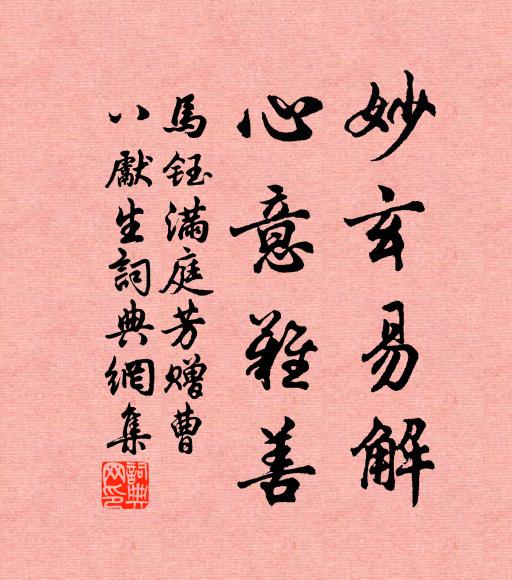 妙玄易解
心意難善
馬鈺滿庭芳赠曹
八獻生詞典網集
詞典
网印